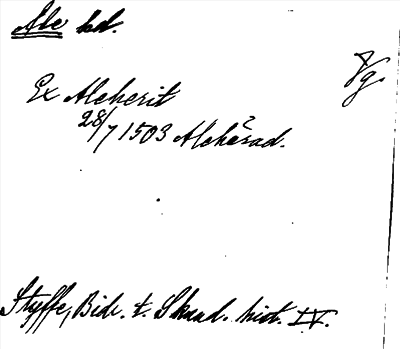 Ale hd.
Vg.
Ex Aleherit
28/7 1503 Alehērad.
Styffe, Bidr. t. Skand. hist. IV.